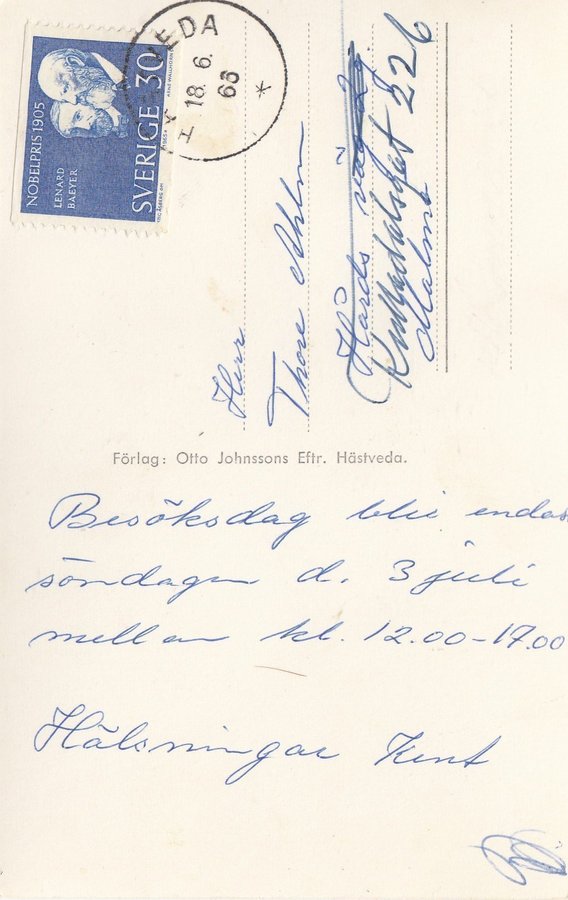 NOBELPRIS 1905
LENARD
BAEYER
SVERIGE 30
VEDA
18. 6.
66
*
Herr
Thore Ahlm
Hårds väg
226
Malmö
Förlag: Otto Johnssons Eftr. Hästveda.
Besöksdag blir endas
söndagen d. 3 juli
mellan kl. 12.00-17.00
Hälsningar Kent